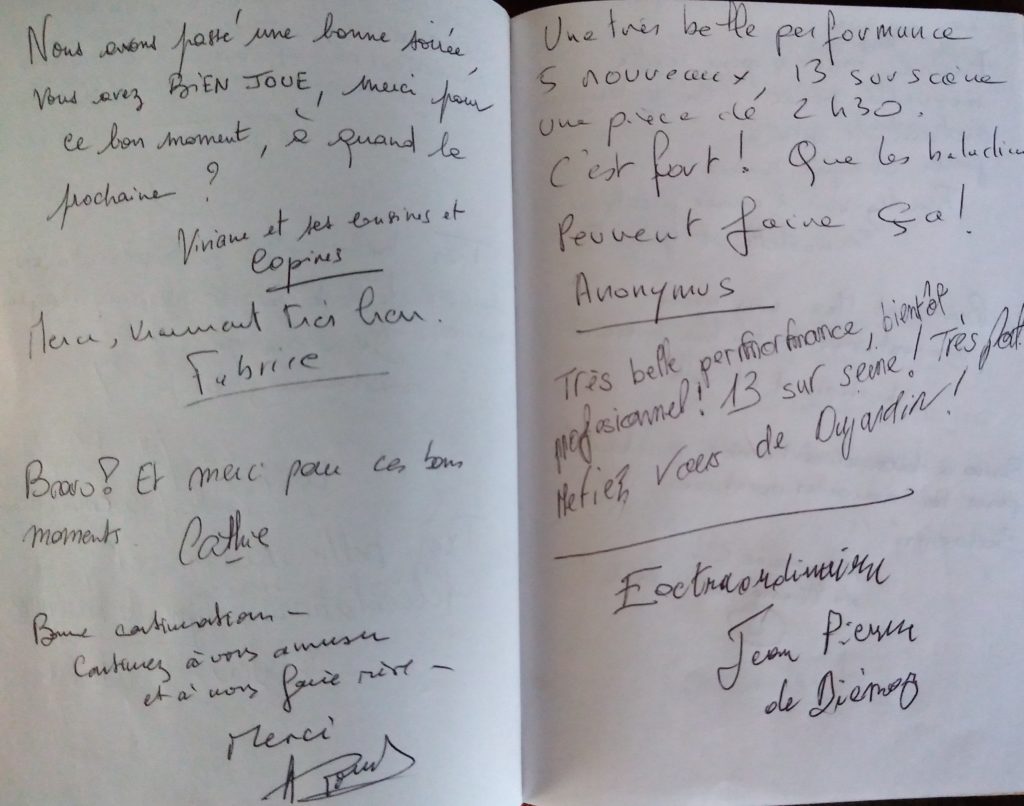 Nous avons passé une bonne soirée
vous avez BIEN JOUE, merci pour
ce bon moment, à quand la
prochaine ?
Viviane et ses cousines et
copines
Merci, vraiment très bien.
Fabrice
Bravo! Et merci pour ces bons
moments. Cathie
Bonne continuation -
Continuez à vous amuser
et à nous faire rire -
Merci
Une très belle performance
5 nouveaux, 13 sur scène
une pièce de 2h30.
C'est fort! Que les baladins
Peuvent faire ça!
Anonymus
Très belle performance, bientôt
profesionnel! 13 sur seine! Très fort.
Mefiez vous de Dujardin!
Extraordinaire
Jean Pierre
de Diémoz